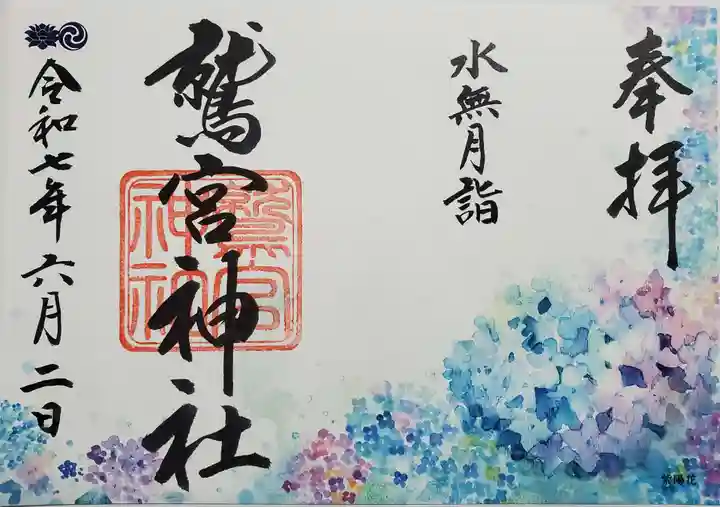 奉拝
水無月詣
鷲宮神社
鷲宮
神社
令和七年六月二日
紫陽花